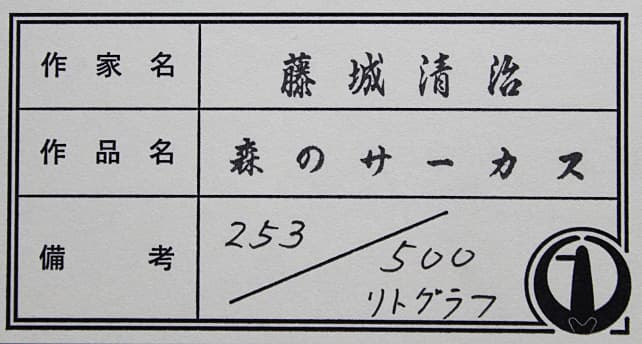 作家名 藤城清治
作品名 森のサーカス
備考 253/500
リトグラフ